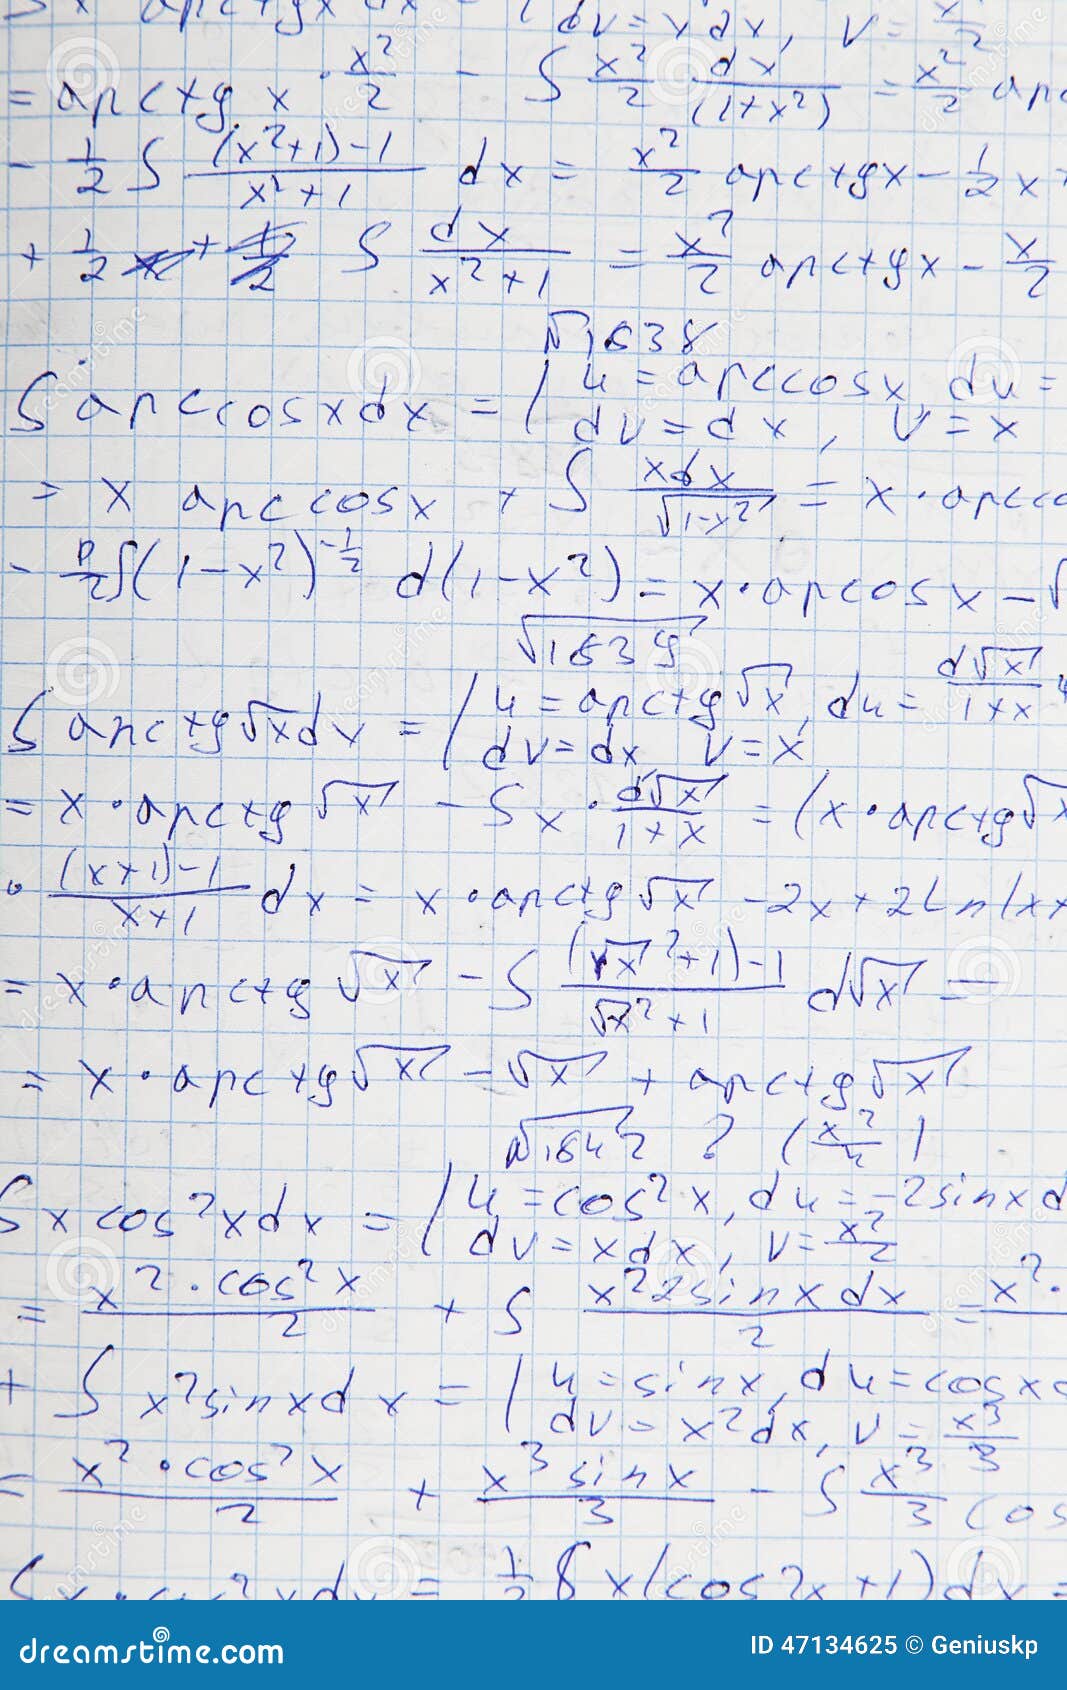 dv = x dx, v = x²/2
= arctg x · x²/2 - ∫ x²/2 · dx/(1+x²) = x²/2 arc
- 1/2 ∫ ((x²+1)-1)/(x²+1) dx = x²/2 arctgx - 1/2 x +
+ 1/2 ∫ dx/(x²+1) = x²/2 arctgx - x/2
√1638
∫ arccosxdx = | u = arccosx, du =
dv = dx, v = x
= x arccosx + ∫ xdx/√(1-x²) = x · arcco
- 1/2 ∫(1-x²)^(-1/2) d(1-x²) = x · arcosx - √
√1639
∫ arctg√x dx = | u = arctg√x, du = d√x/(1+x)
dv = dx, v = x
= x · arctg√x - ∫ x · d√x/(1+x) = (x · arctg√x
· ((x+1)-1)/(x+1) dx = x · arctg√x - 2x + 2Ln|x+
= x · arctg√x - ∫ ((√x²+1)-1)/(√x²+1) d√x =
= x · arctg√x - √x + arctg√x
√1642 ? (x²/4)
∫ x cos²xdx = | u = cos²x, du = -2sinxd
dv = xdx, v = x²/2
= x² · cos²x/2 + ∫ x²2sinxdx/2 = x² ·
+ ∫ x²sinxdx = | u = sinx, du = cosx
dv = x²dx, v = x³/3
= x² · cos²x/2 + x³sinx/3 - ∫ x³/3 cos
= 1/2 ∫ x(cos2x+1)dx =
dreamstime.com
ID 47134625 © Geniuskp